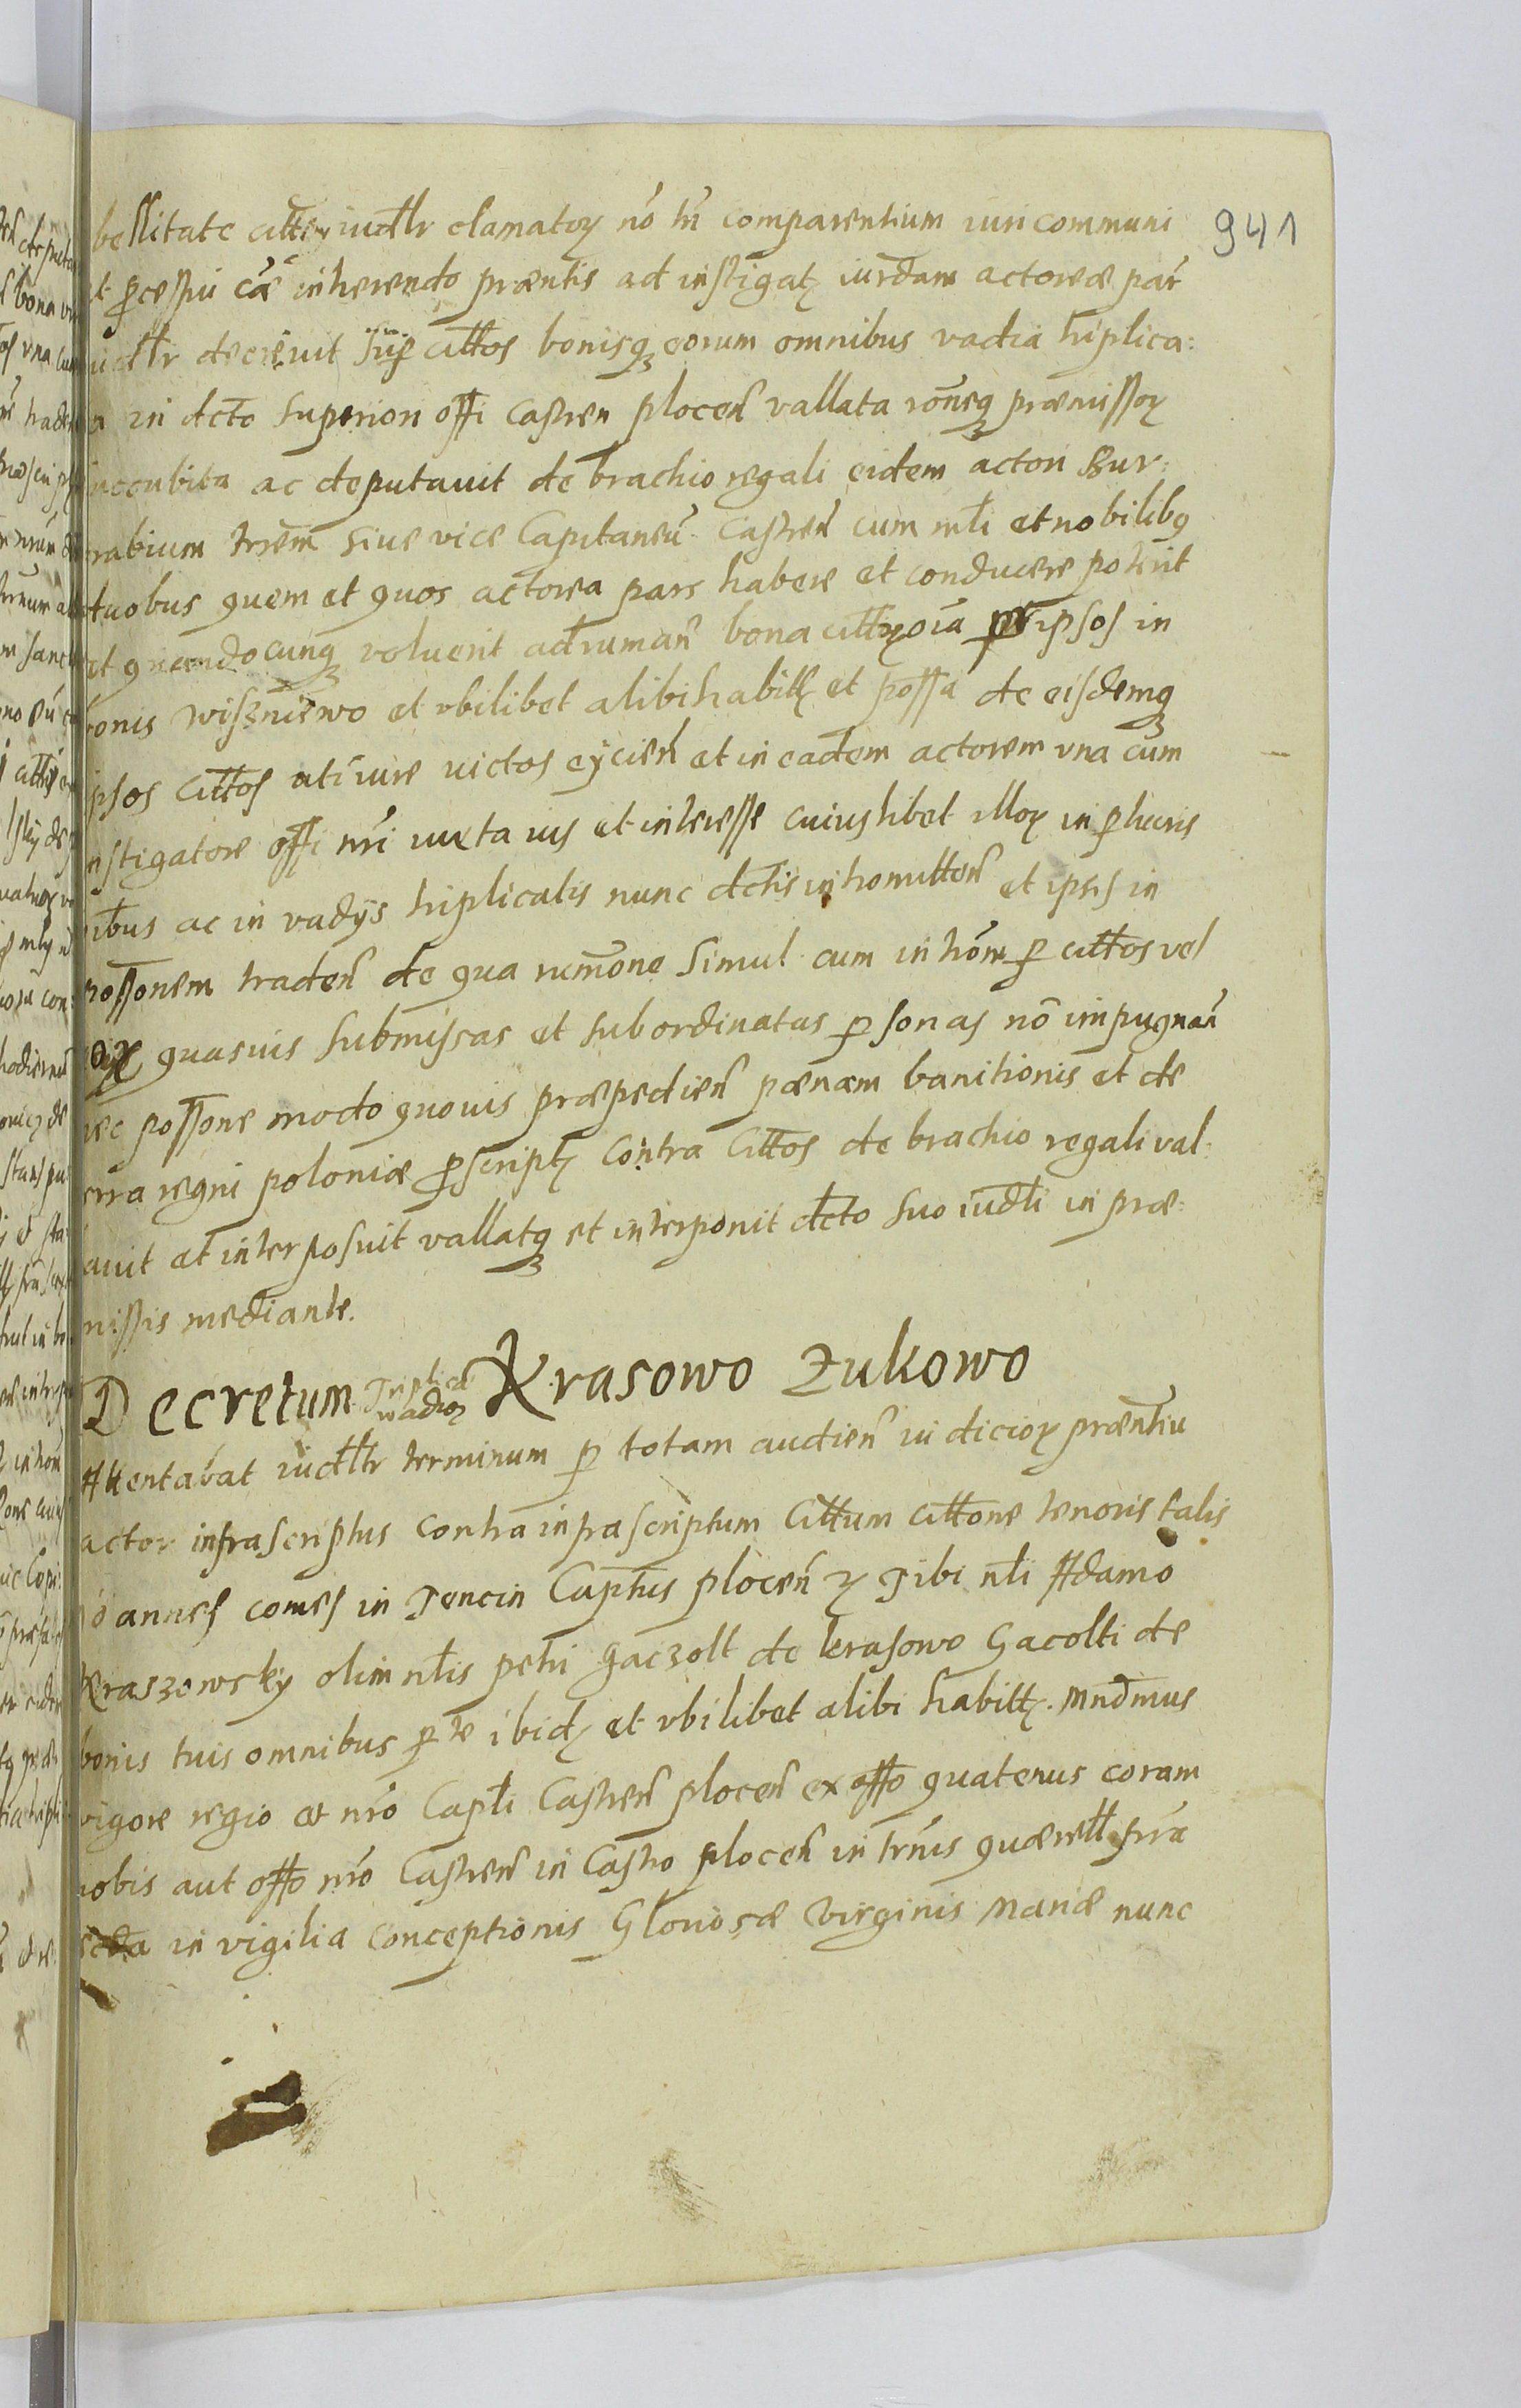 941
bellitate citt iudltr clamatoꝝ nō tn̄ comparentium iuri communi
et ꝓcessui cāe inherendo praentis ad instigatꝫ iurdam actoreae par
iudltr decreuit sup cittos bonisqꝫ eorum omnibus vadia triplica:
in dcto superiori offi Castren plocen̄ vallata rōneqꝫ praemissoꝝ
succubita ac deputauit de brachio regali eidem actori Bur:
rabium trrem̄ siue vice Capitaneū Castren̄ cum młi et nobilibꝯ
duobus quem et quos actorea pars habere et conducere poterit
et quandocunqꝫ voluerit ad ruman̄ bona cittꝝ oīa per ipsos in
bonis Wiszniewo et vbilibet alibi habittꝫ et possa de eisdemqꝫ
ipsos Cittos uti iure victos eÿcien̄ et in eadem actorem vna cum
instigatore offi nr̄i iuxta ius et interesse cuiuslibet illoꝝ in ꝑlucris
ac in vadÿs triplicatis nunc dctis intromitten̄ et ipsis in
possonem traden̄ de qua rumōne simul cum introm̄ ꝑ cittos vel
quasuis submissas et subordinatas ꝑsonas nō impugnan̄
nec possone modo quouis praepedien̄ paenam banitionis et de
regni poloniae ꝓscriptꝫ contra Cittos de brachio regali val:
auit et interposuit vallatqꝫ et interponit dcto suo iudłi in prae:
missis mediante.
Decretum Triplica vadioꝝ Krasowo Zukowo
Attentabat iudltr terminum ꝑ totam audien̄ iudicioꝝ praentiu
actor infrascriptus contra infrascriptum Cittum cittone tenoris talis
Joannes comes in Tencin Captus plocen̄ ꝫ Tibi nłi Adamo
Kraszewskÿ olim nłis petri gaczolt de krasowo Gacolti de
bonis tuis omnibus ꝑ te ibidꝫ et vbilibet alibi habittꝫ. Mndmus
vigore regio et nr̄o Capłi Castren̄ plocen̄ ex offo quatenus coram
nobis aut offo nr̄o Castren̄ in Castro plocen̄ in trn̄is quaerell fr̄ia
in vigilia Conceptionis Gloriosae Virginis Mariae nunc